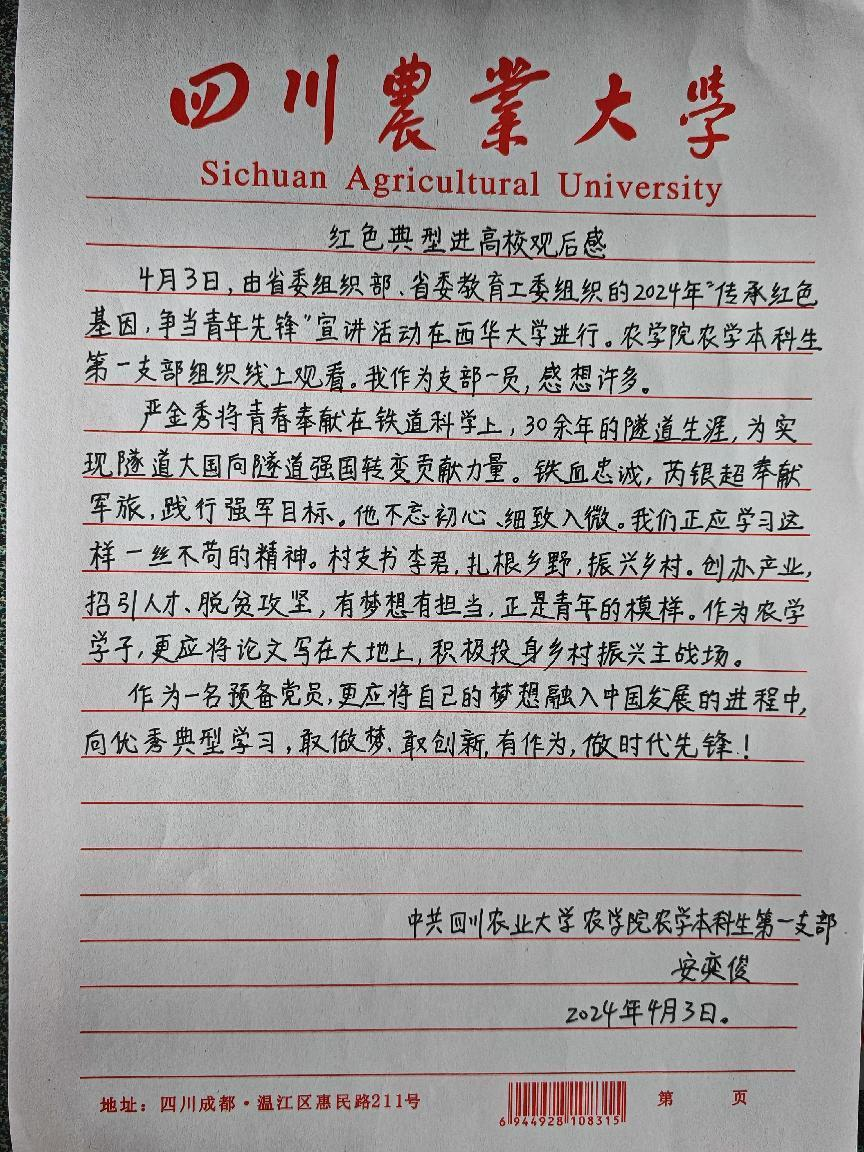 四川農業大學
Sichuan Agricultural University
红色典型进高校观后感
4月3日，由省委组织部、省委教育工委组织的2024年“传承红色
基因，争当青年先锋”宣讲活动在西华大学进行。农学院农学本科生
第一支部组织线上观看。我作为支部一员，感想许多。
严金秀将青春奉献在铁道科学上，30余年的隧道生涯，为实
现隧道大国向隧道强国转变贡献力量。铁血忠诚，芮银超奉献
军旅，践行强军目标。他不忘初心、细致入微。我们正应学习这
样一丝不苟的精神。村支书李君，扎根乡野，振兴乡村。创办产业，
招引人才、脱贫攻坚，有梦想有担当，正是青年的模样。作为农学
学子，更应将论文写在大地上，积极投身乡村振兴主战场。
作为一名预备党员，更应将自己的梦想融入中国发展的进程中，
向优秀典型学习，敢做梦、敢创新，有作为，做时代先锋！
中共四川农业大学农学院农学本科生第一支部
安奕俊
2024年4月3日。
地址：四川成都·温江区惠民路211号
6 944928 108315
第 页